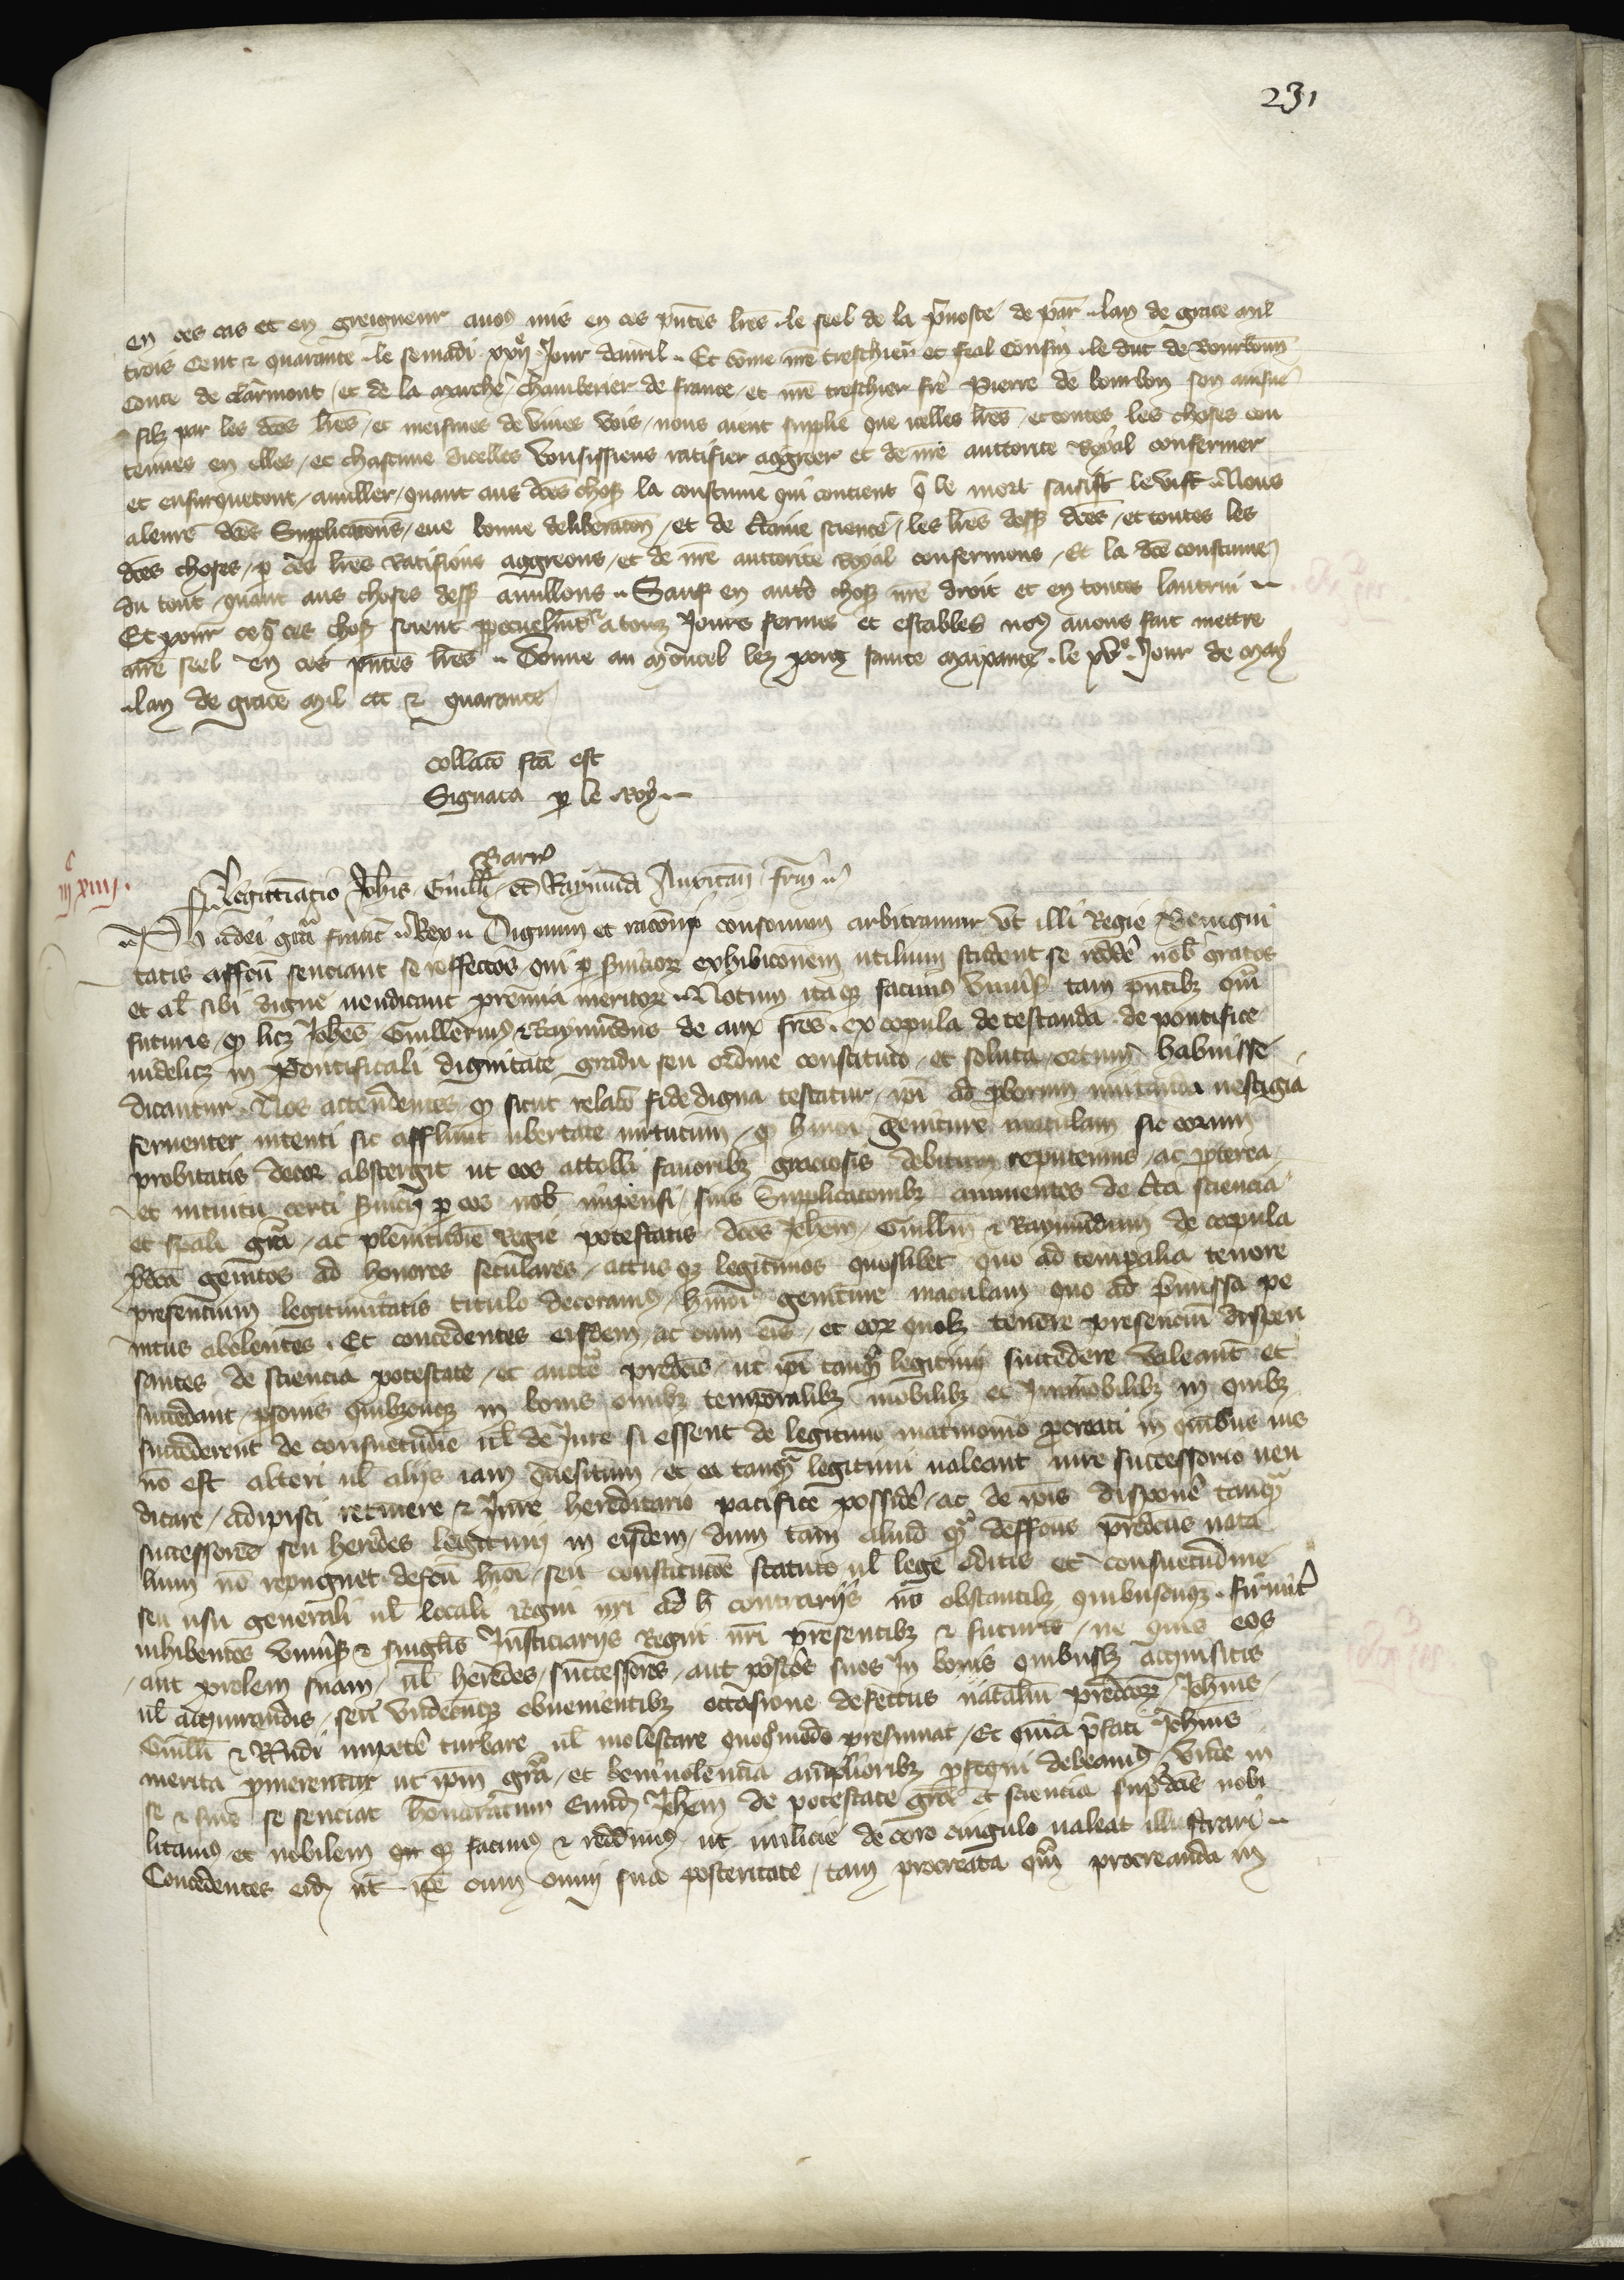 231
en ces cas et en greigneur auons mis en ces pñtes lres le seel de la puoste de par lan de grace mil
trois cent & quarante le semadi xxij jour dauril Et come nre treschier et feal cousin le duc de bourbonn
conte de clermont et de la marche chamberier de france et nre treschier fre Pierre de bourbon son ainsne
filz par les dces lres et meismes de viues vois nous aient supplie que icelles lres et toutes les choses con
tenues en elles et chascune dicelles voussissiens ratifier aggreer et de nre auctorite Royal confermer
et ensurquetout anuller quant aus dces choses la coustume qui contient q le mort saisist le vif Nous
a leurs dces supplicacons eue bonne deliberacon et de ctaine science les lres dess dces et toutes les
dces choses p ces lres ratifions aggreons et de nre auctorite Royal confermons Et la dce coustume
du tout quant aus choses dess anullons Sauf en autres choses nre droit et en toutes lautrui
Et pour ce q ces choses soient ppetuelment a touz jours fermes et estables nous auons fait mettre
nre seel en ces pntes lres Donne au moncel lez pons sainte maixance le xve jour de may
lan de grace mil ccc & quarante
collaco fca est
Signata p le Roy
Barre
Legittimatio Johis Guillmi et Raymundi Auxitan frm
iijc xiiij
Ph dei gra franc Rex Dignum et raconi consonum arbitramur vt illi Regie benigni
tatis affcu senciant se reffectos qui p seruicior exhibiconem utilium student se reddere nob gratos
et al sibi digne uendicant premia meritor Notum itaq facimus vniuersis tam pntibz qm
futuris q licz Johes Guillermus & Raymundus de aux fres ex copula detestanda de pontifice
uidelicz in pontificali dignitate gradu seu ordine constituto et soluta ortum habuisse
dicantur Nos attendentes q sicut relaco fidedigna testatur ipi ad pborum imitanda uestigia
feruenter intenti sic affluunt ubertate uirtutum q hmoi geniture maculam sic eorum
probitatis decor abstergit ut eos attolli fauoribz graciosis debitum reputemus ac propterea
et intuitu certi seruicij p eos nob impensi suis supplicaconibz annuentes de cta sciencia
et spali gra ac plenitudie Regie potestatis dcos Johem Guillm & Raymundum de copula
pdca genitos ad honores seculares actus q legitimos quoslibet quo ad temporalia tenore
presencium legitimitatis titulo decoramus hmoi geniture maculam quo ad pmissa pe
nitus abolentes Et concedentes eisdem ac cum eis et eor quolz tenore presencium dispen
santes de sciencia potestate et aucte predcis ut ipi tanqm legitimi succedere valeant et
succedant psonis quibzcunqz in bonis omibz temporalibz mobilibz et immobilibz in quibz
succederent de consuetudie ul de jure si essent de legitimo matrimonio procreati in quibus ius
no est alteri ul alijs iam quesitum et ea tanqm legitimi ualeant iure successorio uen
dicare adipisci retinere & jure hereditario pacifice possidere ac de ipis disponere tanqm
successores seu heredes legitimi in eisdem dum tam aliud qm deffectus predcus nata
lium no repugnet defcu hmoi seu constitucoe statuto ul lege editis et consuetudine
seu usu generali ul locali regni nri ad h contrarijs no obstantibz quibuscunqz firmit
inhibentes vniuersis & singulis Justiciarijs Regni nri presentibz & futuris ne quis eos
aut prolem suam ul heredes successores aut postos suos in bonis quibuslz acquisitis
ul acquirendis seu vndecunqz obuenientibz occasione defectus natalium predcor Johnis
Guillmi & Rmdi impete turbare ul molestare quoqmodo presumat Et quia pfati Johnis
merita pmerentur ut ipm gra et beniuolencia amplioribz psequi debeamus vnde in
se & sine se senciat honoratum Eund Johem de potestate gra et sciencia supdcis nobi
litamus et nobilem q facimus & reddimus ut milicie decoro cingulo ualeat illustrari
Concedentes eid ut ipe cum omni sua posteritate tam procreata qm procreanda in